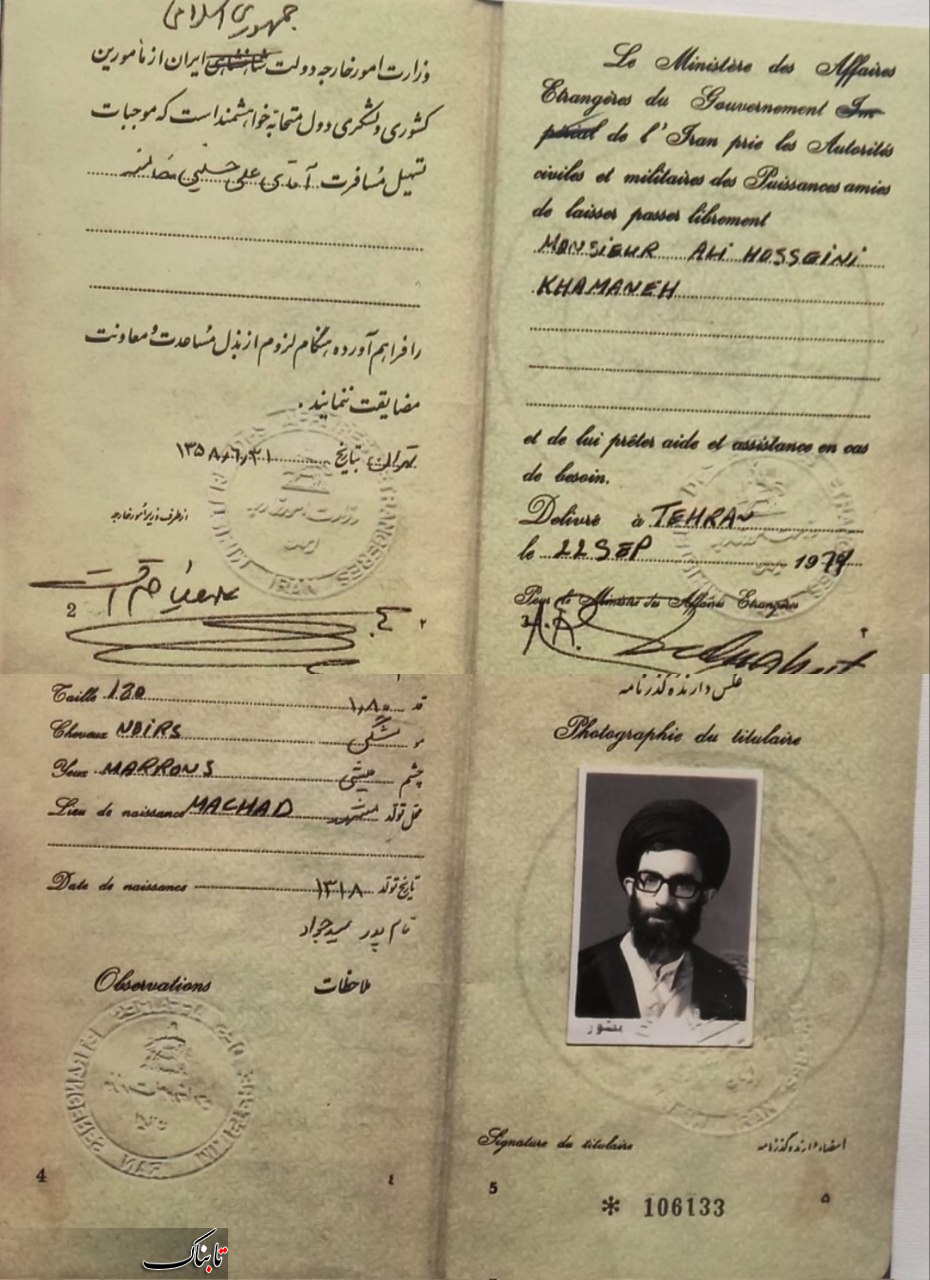 جمهوری اسلامی
وزارت امور خارجه دولت شاهنشاهی ایران از مأمورین
کشوری و لشکری دول متحابه خواهشمند است که موجبات
تسهیل مسافرت آقای علی حسینی خامنه
را فراهم آورده هنگام لزوم از بذل مساعدت و معاونت
مضایقت ننمایند.
تهران بتاریخ ۱۳۵۸،۶،۳۱
از طرف وزیر امور خارجه
2 ۲
Le Ministère des Affaires
Etrangères du Gouvernement Im-
périal de l'Iran prie les Autorités
civiles et militaires des Puissances amies
de laisser passer librement
MONSIEUR ALI HOSSEINI
KHAMANEH
et de lui prêter aide et assistance en cas
de besoin.
Délivré à TEHRAN
le 22 SEP 1979
Pour le Ministre des Affaires Etrangères
3 ۳
Taille 180 قد ۱,۸۰
Cheveux NOIRS مو مشگی
Yeux MARRONS چشم میشی
Lieu de naissance MACHAD محل تولد مشهد
Date de naissance تاریخ تولد ۱۳۱۸
نام پدر سید جواد
Observations ملاحظات
4 ٤
عکس دارنده گذرنامه
Photographie du titulaire
Signature du titulaire امضاء دارنده گذرنامه
5 ۵
* 106133
تابناک